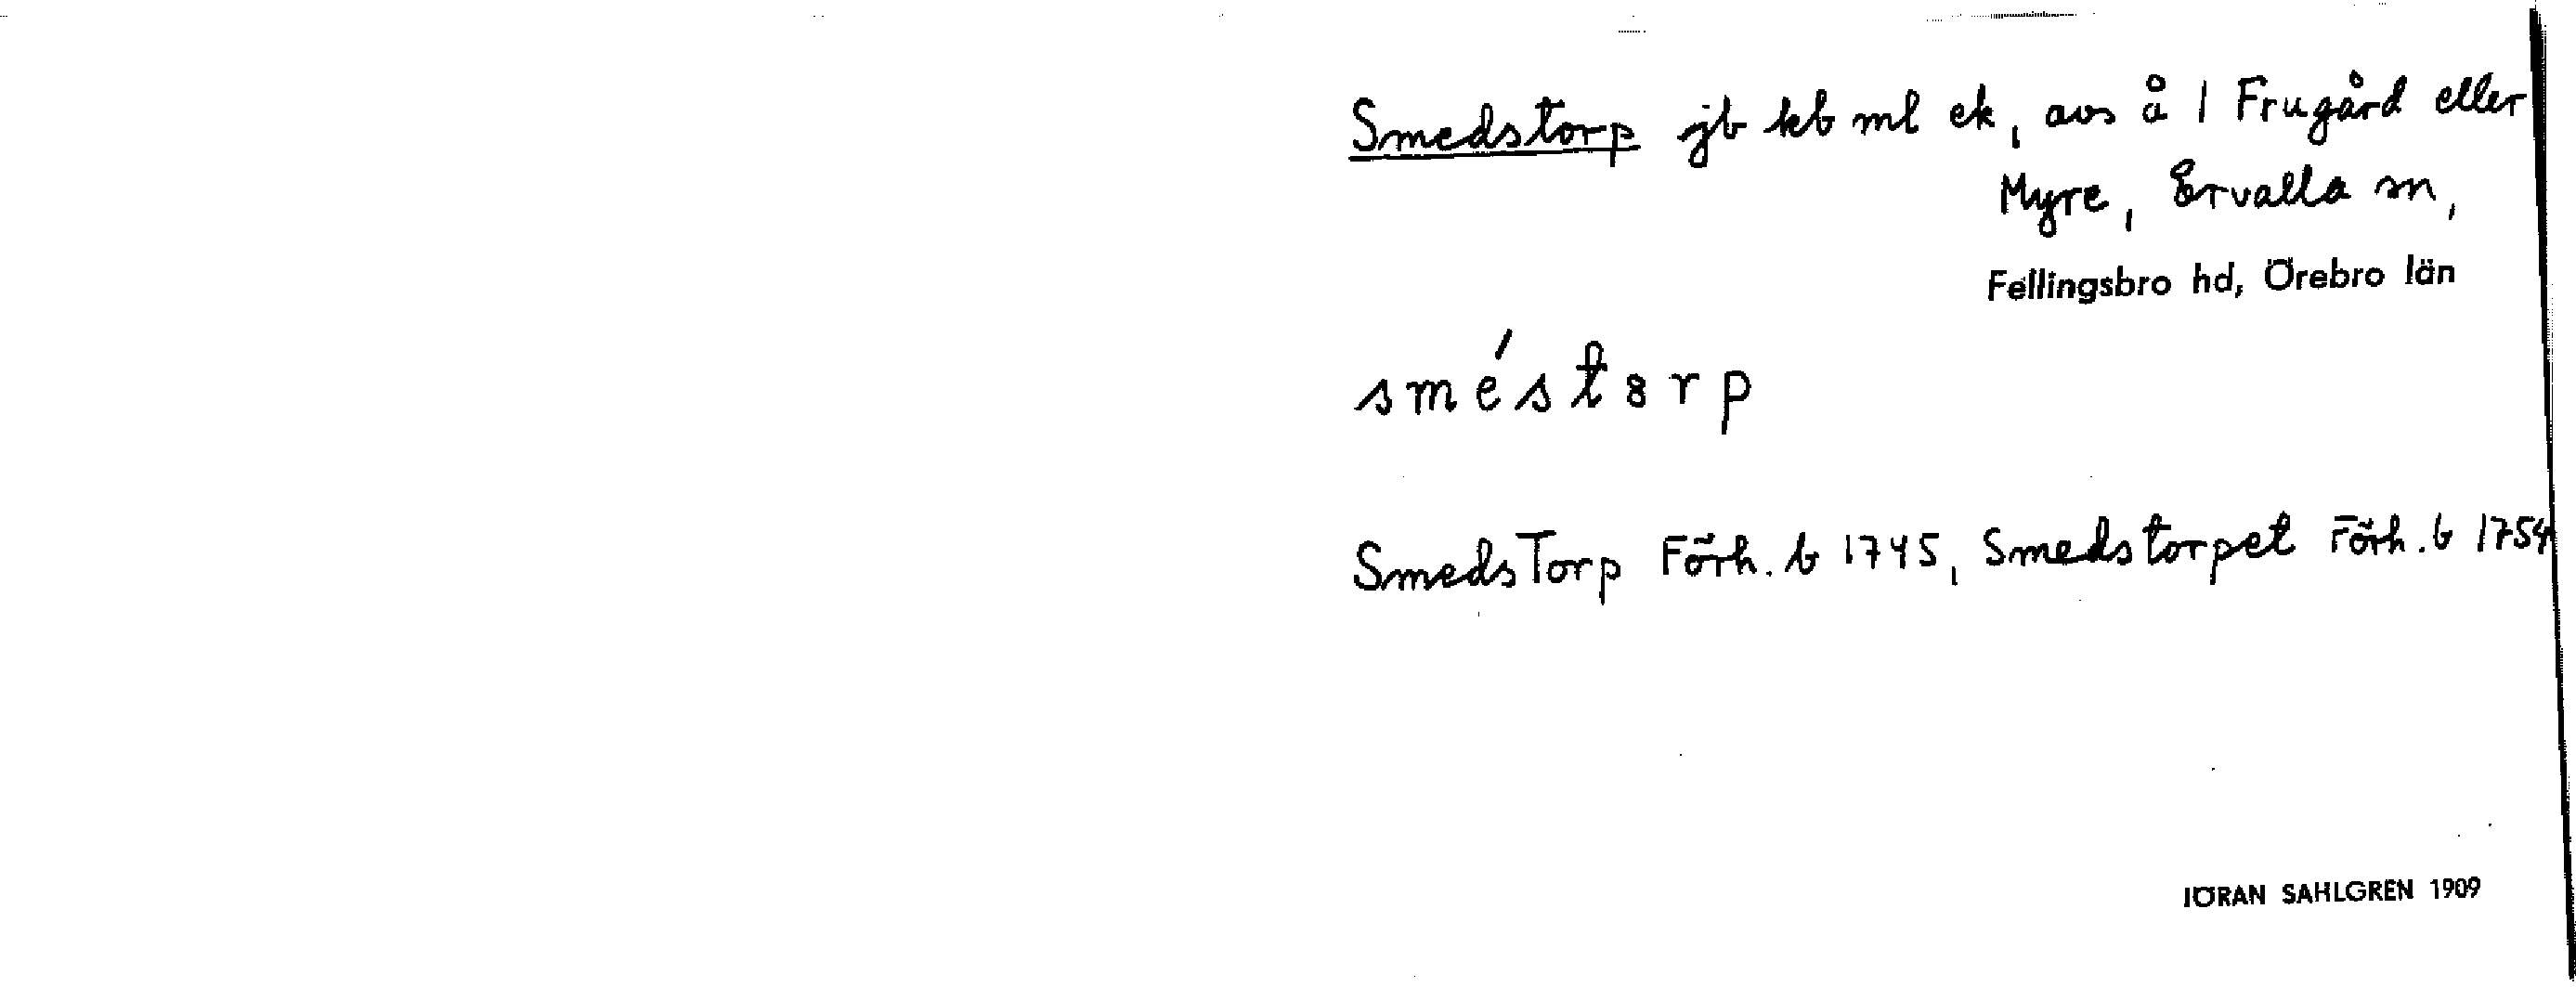 Smedstorp jb kb ml ek, avs å 1 Frugård eller
Myre, Ervalla sn,
Fellingsbro hd, Örebro län
sméstorp
SmedsTorp Förh. b 1745, Smedstorpet Förh. b 1754
JÖRAN SAHLGREN 1909